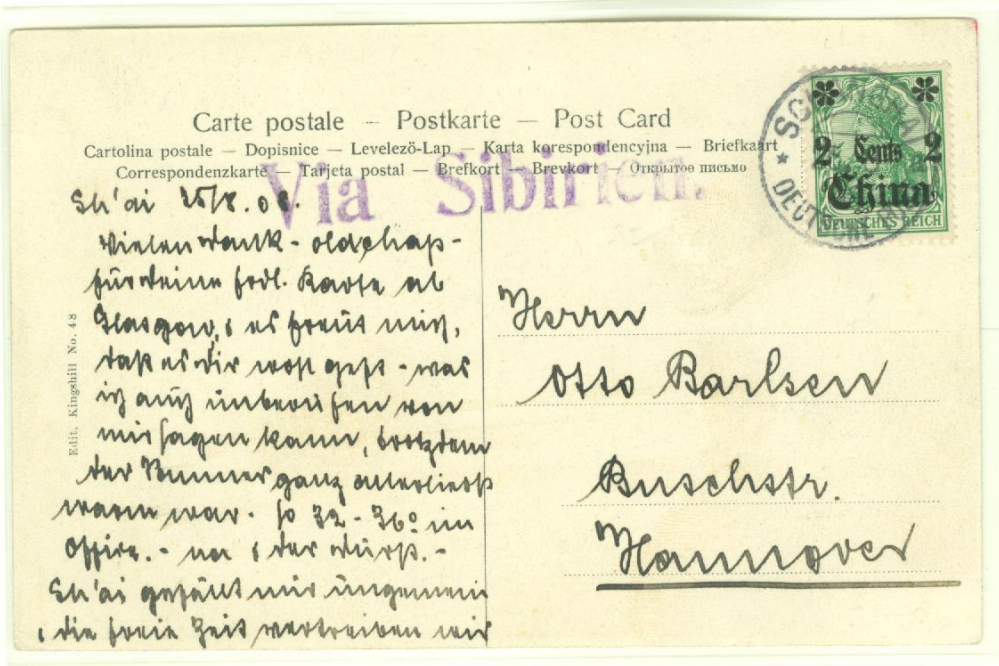 Carte postale – Postkarte – Post Card
Cartolina postale — Dopisnice — Levelező-Lap — Karta korespondencyjna — Briefkaart
Correspondenzkarte — Tarjeta postal — Brefkort — Brevkort — Открытое письмо
Via Sibirien.
2 Cents 2
China
DEUTSCHES REICH
DEUTSCHE
Edit. Kingshill No. 48
Sh'ai 25/8.08.
Vielen Dank – old chap –
für deine frdl. Karte ab
Glasgow, & es freut mich,
daß es dir wohl geht – was
ich auch unberufen von
mir sagen kann, trotzdem
der Sommer ganz allerliebst
warm war. so 32–36° im
Office. – na & der Durst. –
Sh'ai gefällt mir ungemein
& die freie Zeit vertreiben wir
Herrn
Otto Barlsen
Buschstr.
Hannover